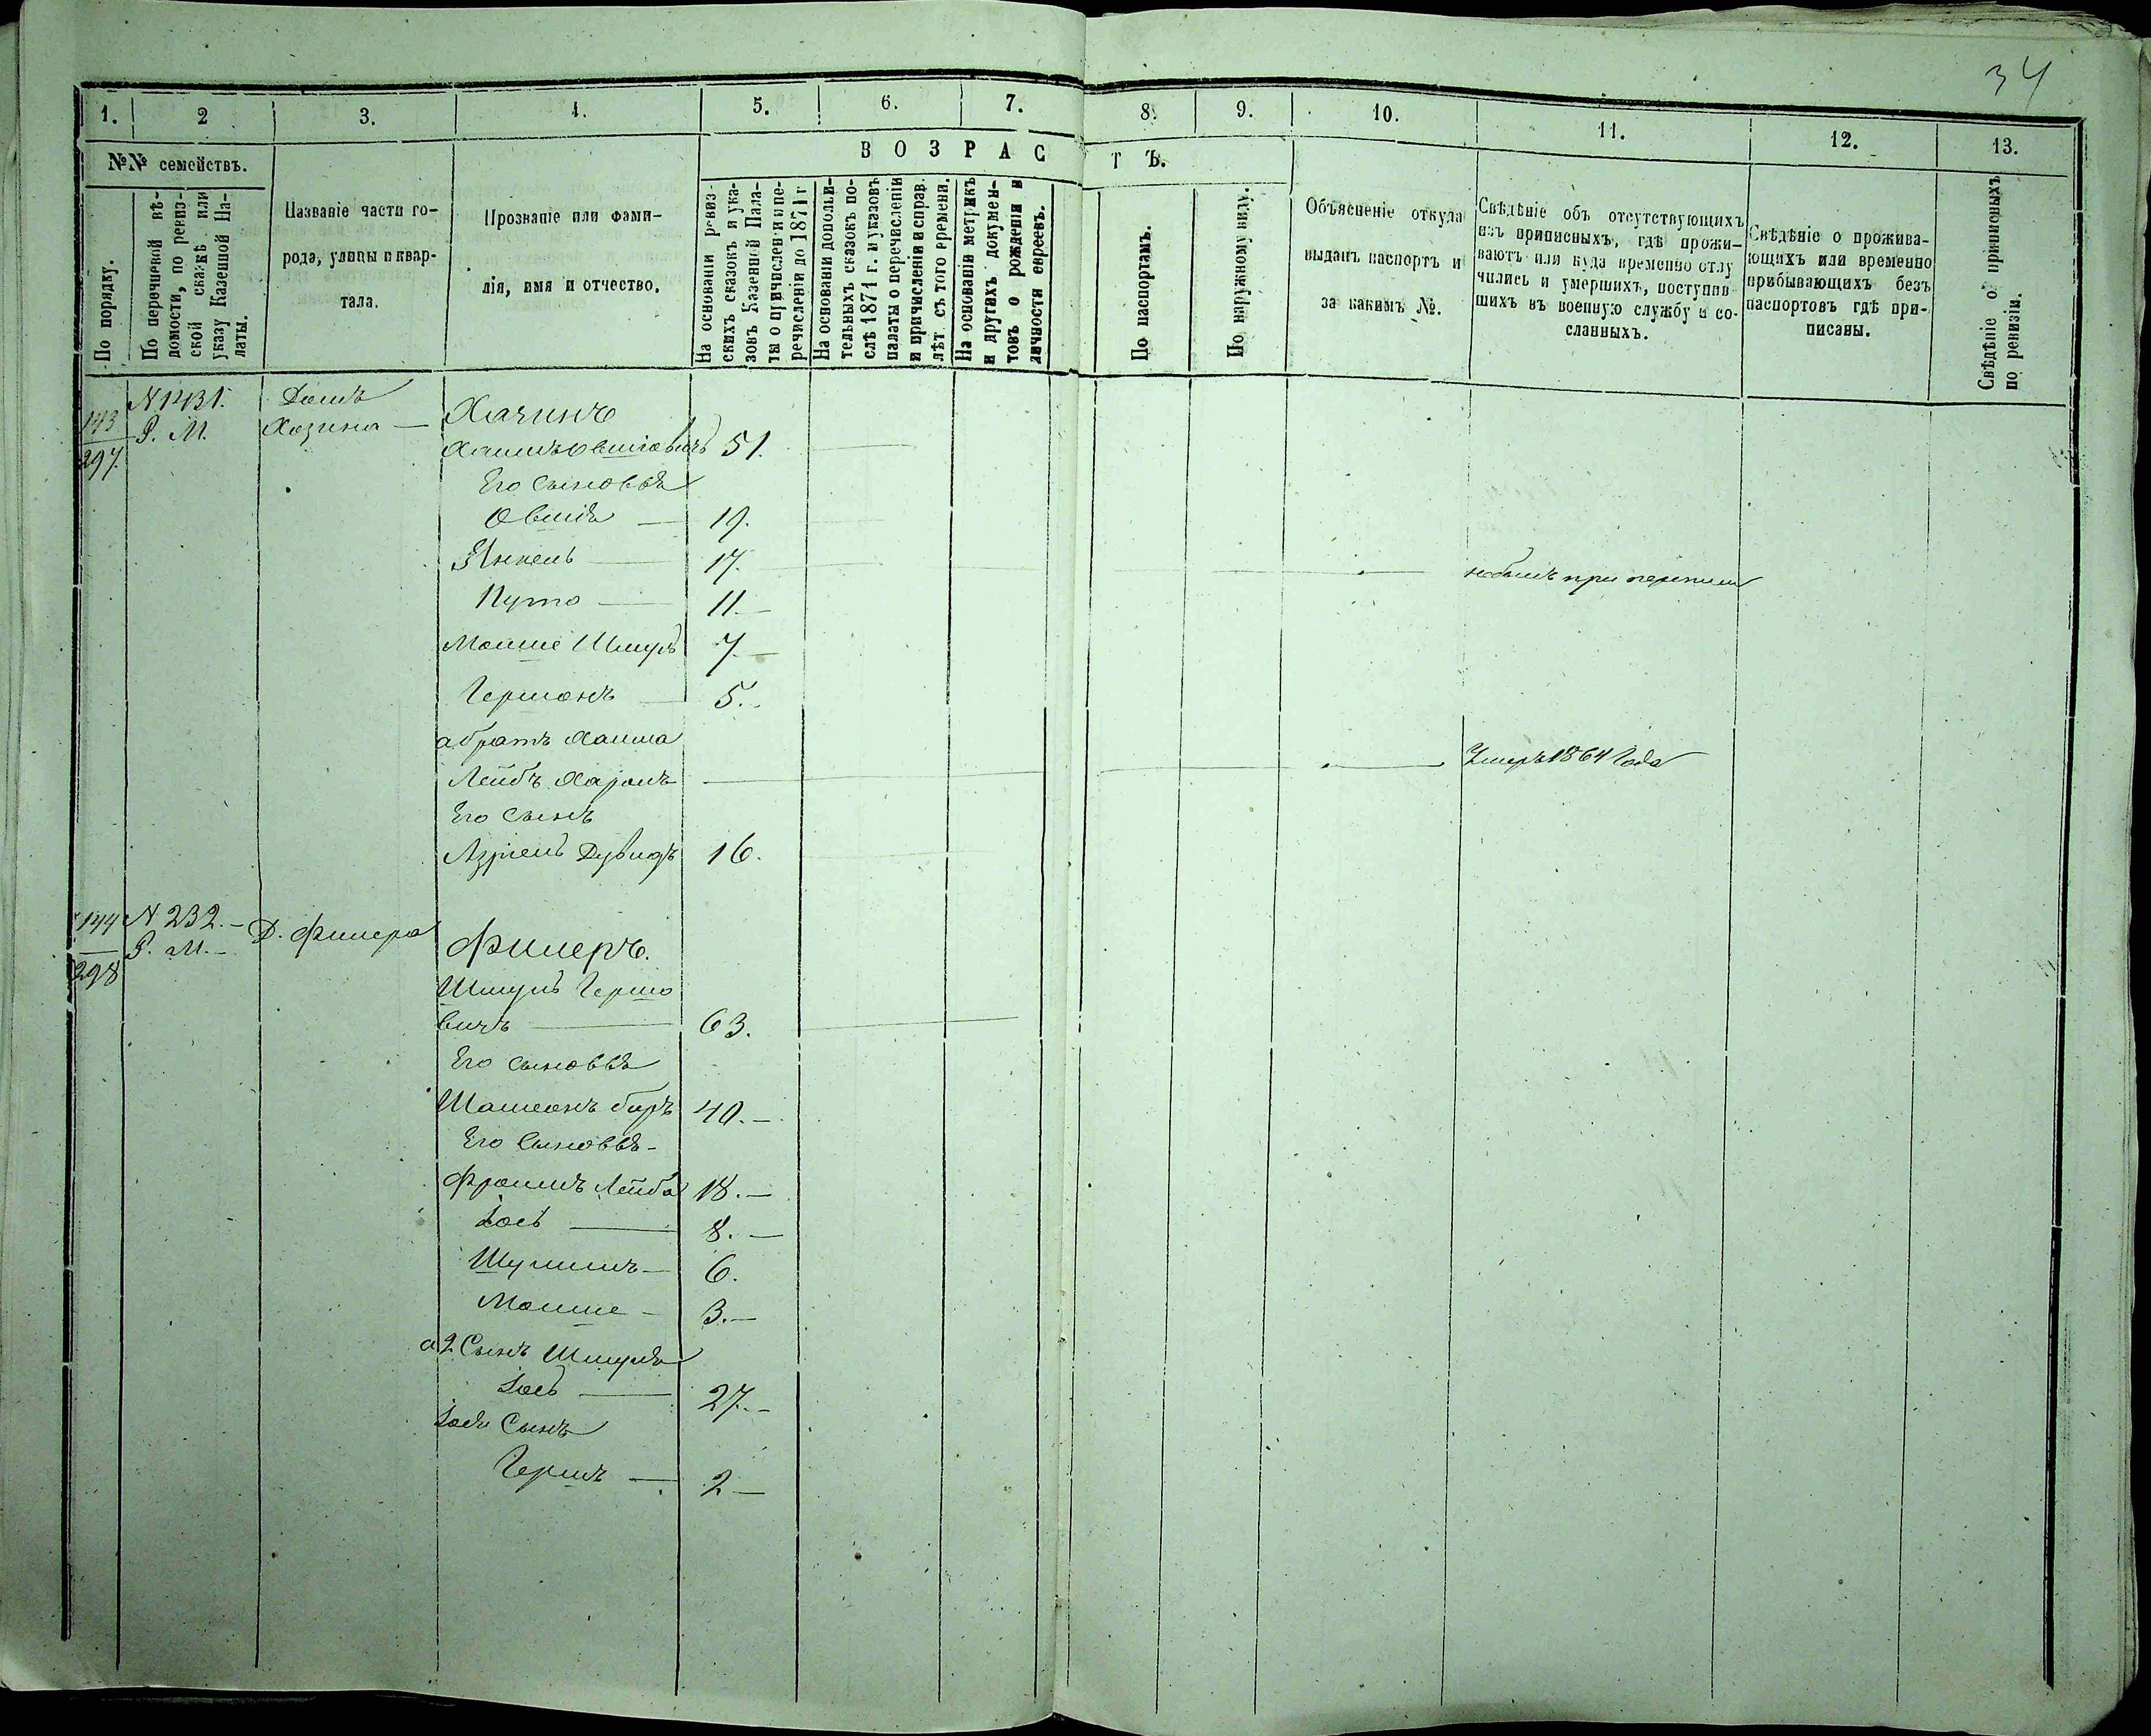 34
1. 2 3. 4. 5. 6. 7. 8. 9. 10. 11. 12. 13.
№№ семействъ.
ВОЗРАСТЪ.
По порядку.
По перечневой вѣ-
домости, по ревиз-
ской сказкѣ или
указу Казенной Па-
латы.
Названіе части го-
рода, улицы и квар-
тала.
Прозваніе или фами-
лія, имя и отчество.
На основаніи ревиз-
скихъ сказокъ и ука-
зовъ Казенной Пала-
ты о причислен и и пе-
речисленіи до 1871 г
На основаніи дополни-
тельныхъ сказокъ по-
слѣ 1871 г. и указовъ
палаты о перечисленіи
и причисленіи и справ.
лѣт. съ того времени.
На основаніи метрикъ
и другихъ докумен-
товъ о рожденіи и
личности евреевъ.
По паспортамъ.
По наружному виду.
Объясненіе откуда
выданъ паспортъ и
за какимъ №.
Свѣдѣніе объ отсутствующихъ
изъ приписныхъ, гдѣ прожи-
ваютъ или куда временно отлу
чились и умершихъ, поступив-
шихъ въ военную службу и со-
сланныхъ.
Свѣдѣніе о прожива-
ющихъ или временно
прибывающихъ безъ
паспортовъ гдѣ при-
писаны.
Свѣдѣніе о приписныхъ
по ревизіи.
143 N 1431. Домъ
297. Р. М. Хазина — Хазинъ
Хаимъ Овшіовичъ 51.
Его сыновья
Овшія — 19.
Янкель — 17. — небылъ при переписи
Нута — 11. —
Мовше Шмуль 7. —
Гершонъ — 5.
а братъ Хаима
Лейбъ Харомъ — Умеръ 1864 Года
Его Сынъ
Азріель Дувидъ 16.
144 N 232. — Д. Фишера
298 Р. М. — Фишеръ.
Шмуль Гершо
вичъ — 63.
Его сыновья
Шлиома беръ 40. —
Его Сыновья —
Фроимъ Лейба 18. —
Іось — 8. —
Шулимъ — 6.
Мошше — 3. —
а 2 Сынъ Шмуля
Іось — 27. —
Іося Сынъ
Гершъ — 2 —